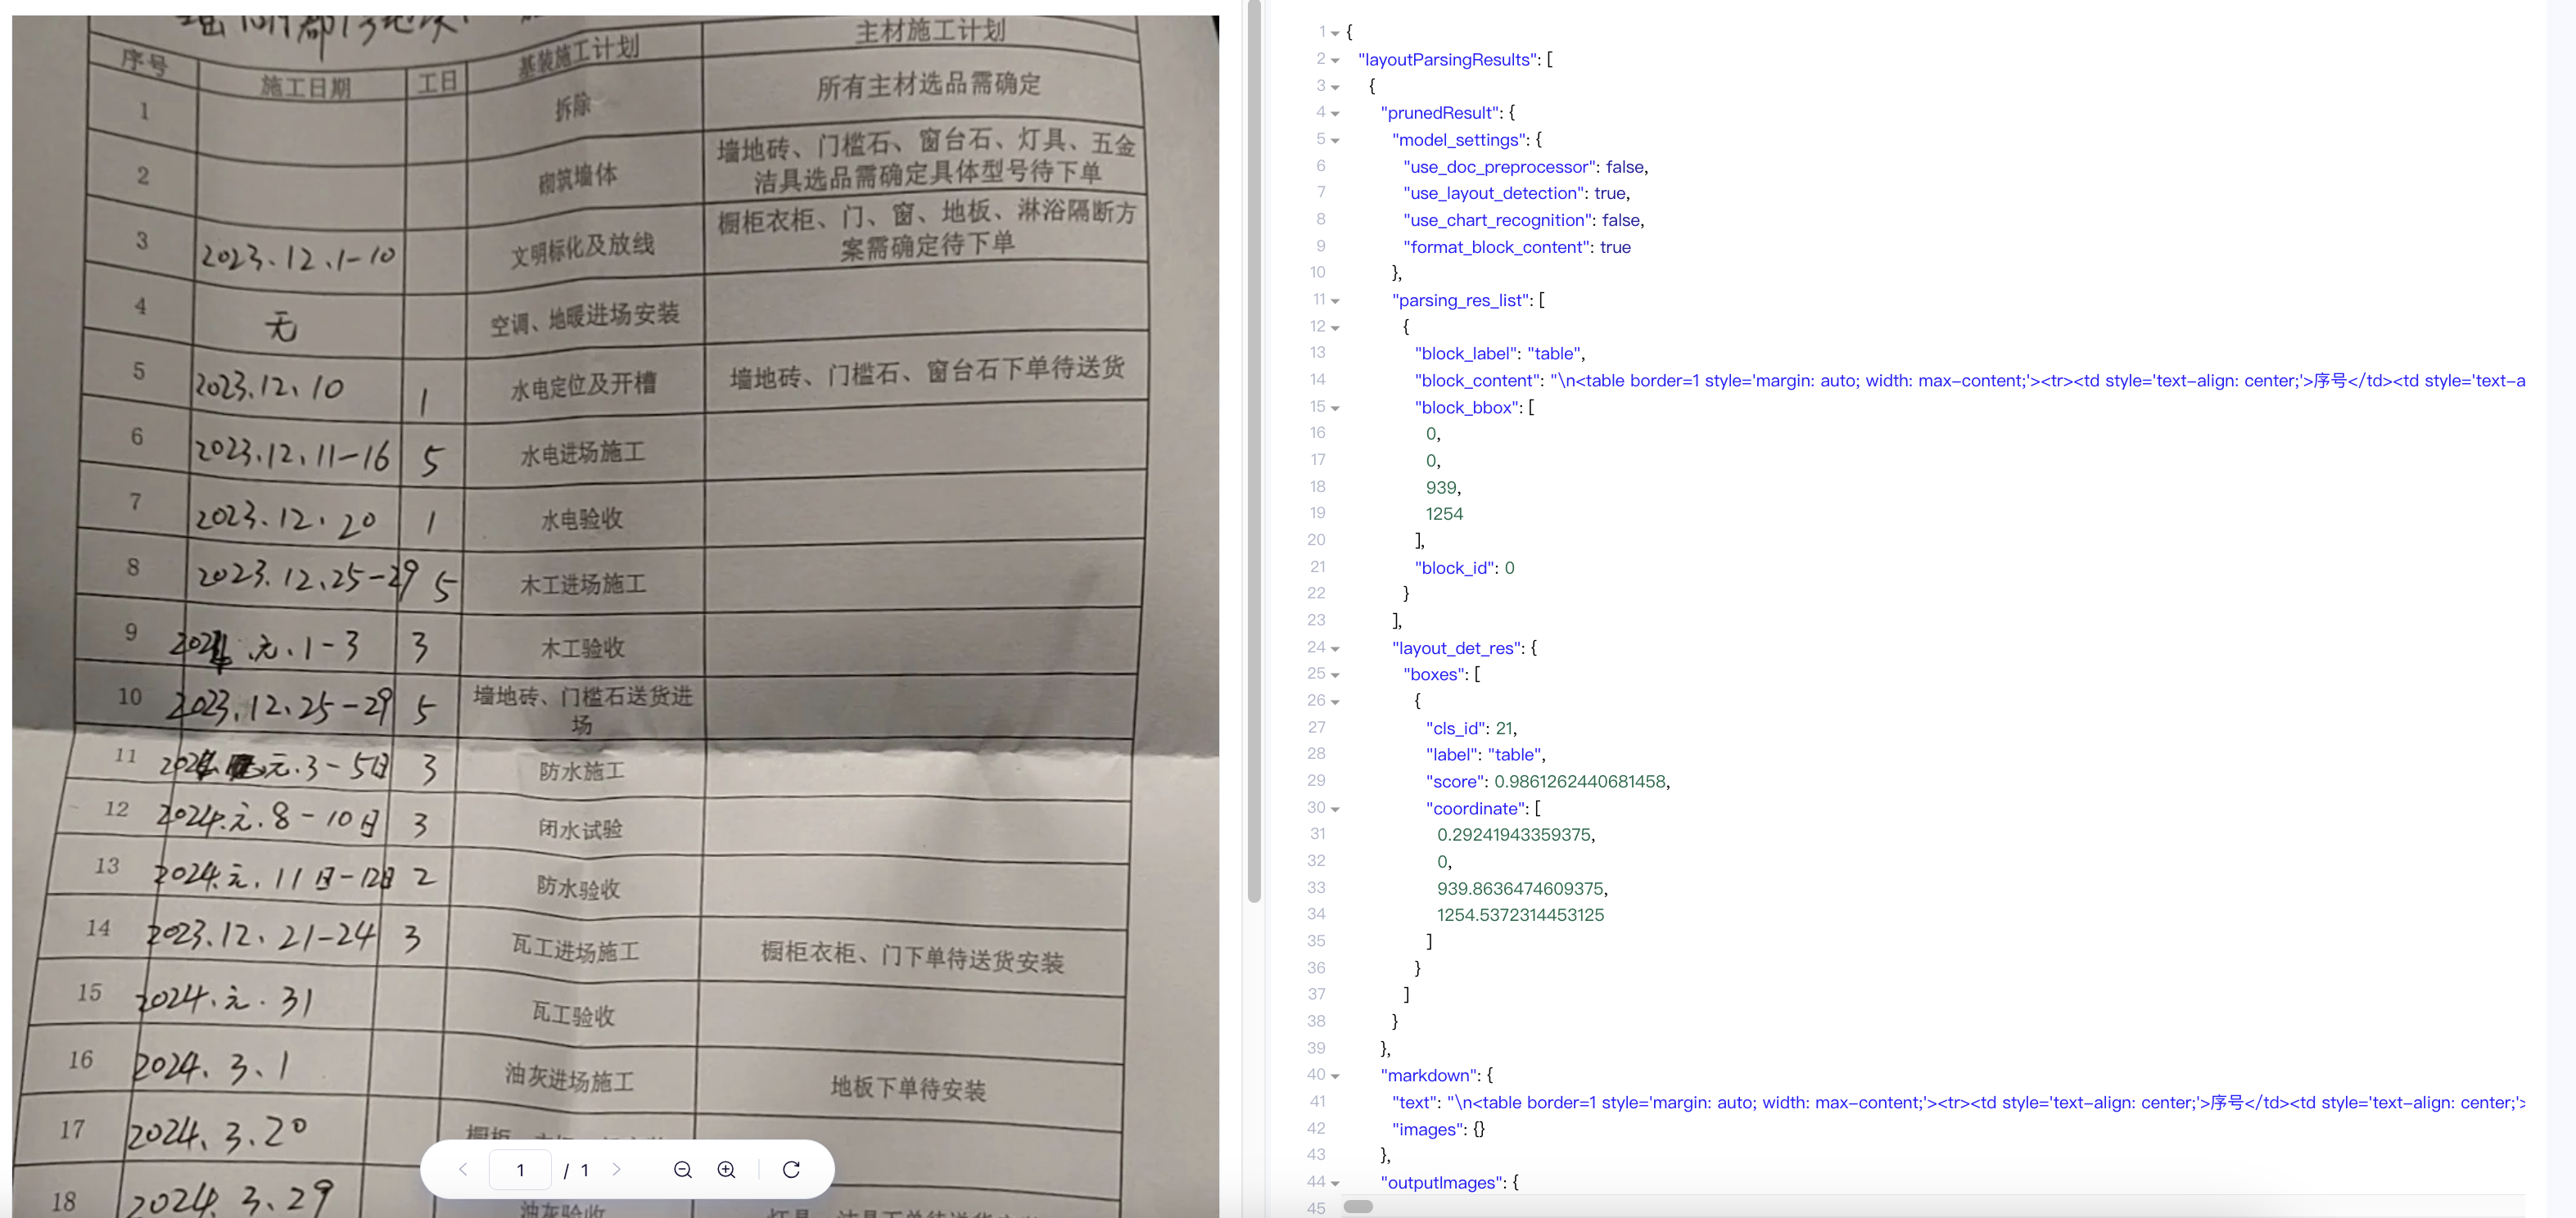 序号
施工日期
工日
基装施工计划
主材施工计划
1
拆除
所有主材选品需确定
2
砌筑墙体
墙地砖、门槛石、窗台石、灯具、五金
洁具选品需确定具体型号待下单
3
2023.12.1-10
文明标化及放线
橱柜衣柜、门、窗、地板、淋浴隔断方
案需确定待下单
4
无
空调、地暖进场安装
5
2023.12.10
1
水电定位及开槽
墙地砖、门槛石、窗台石下单待送货
6
2023.12.11-16
5
水电进场施工
7
2023.12.20
1
水电验收
8
2023.12.25-29
5
木工进场施工
9
2024.元.1-3
3
木工验收
10
2023.12.25-29
5
墙地砖、门槛石送货进
场
11
2024.元.3-5日
3
防水施工
12
2024.元.8-10日
3
闭水试验
13
2024.元.11日-12日
2
防水验收
14
2023.12.21-24
3
瓦工进场施工
橱柜衣柜、门下单待送货安装
15
2024.元.31
瓦工验收
16
2024.3.1
油灰进场施工
地板下单待安装
17
2024.3.20
18
2024.3.29
油灰验收
1 / 1
1 {
2 "layoutParsingResults": [
3 {
4 "prunedResult": {
5 "model_settings": {
6 "use_doc_preprocessor": false,
7 "use_layout_detection": true,
8 "use_chart_recognition": false,
9 "format_block_content": true
10 },
11 "parsing_res_list": [
12 {
13 "block_label": "table",
14 "block_content": "\n<table border=1 style='margin: auto; width: max-content;'><tr><td style='text-align: center;'>序号</td><td style='text-a
15 "block_bbox": [
16 0,
17 0,
18 939,
19 1254
20 ],
21 "block_id": 0
22 }
23 ],
24 "layout_det_res": {
25 "boxes": [
26 {
27 "cls_id": 21,
28 "label": "table",
29 "score": 0.9861262440681458,
30 "coordinate": [
31 0.29241943359375,
32 0,
33 939.8636474609375,
34 1254.5372314453125
35 ]
36 }
37 ]
38 }
39 },
40 "markdown": {
41 "text": "\n<table border=1 style='margin: auto; width: max-content;'><tr><td style='text-align: center;'>序号</td><td style='text-align: center;'>
42 "images": {}
43 },
44 "outputImages": {
45